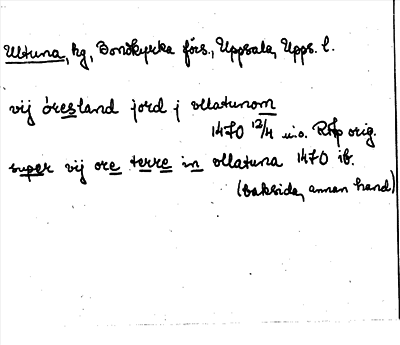 Ultuna, hg, Bondkyrkaförs., Uppsala, Upps. l.
vij öresland jord j ollatunom
1470 12/4 u.o. RAp orig.
super vij ore terre in ollatuna 1470 ib.
(baksida, annan hand)